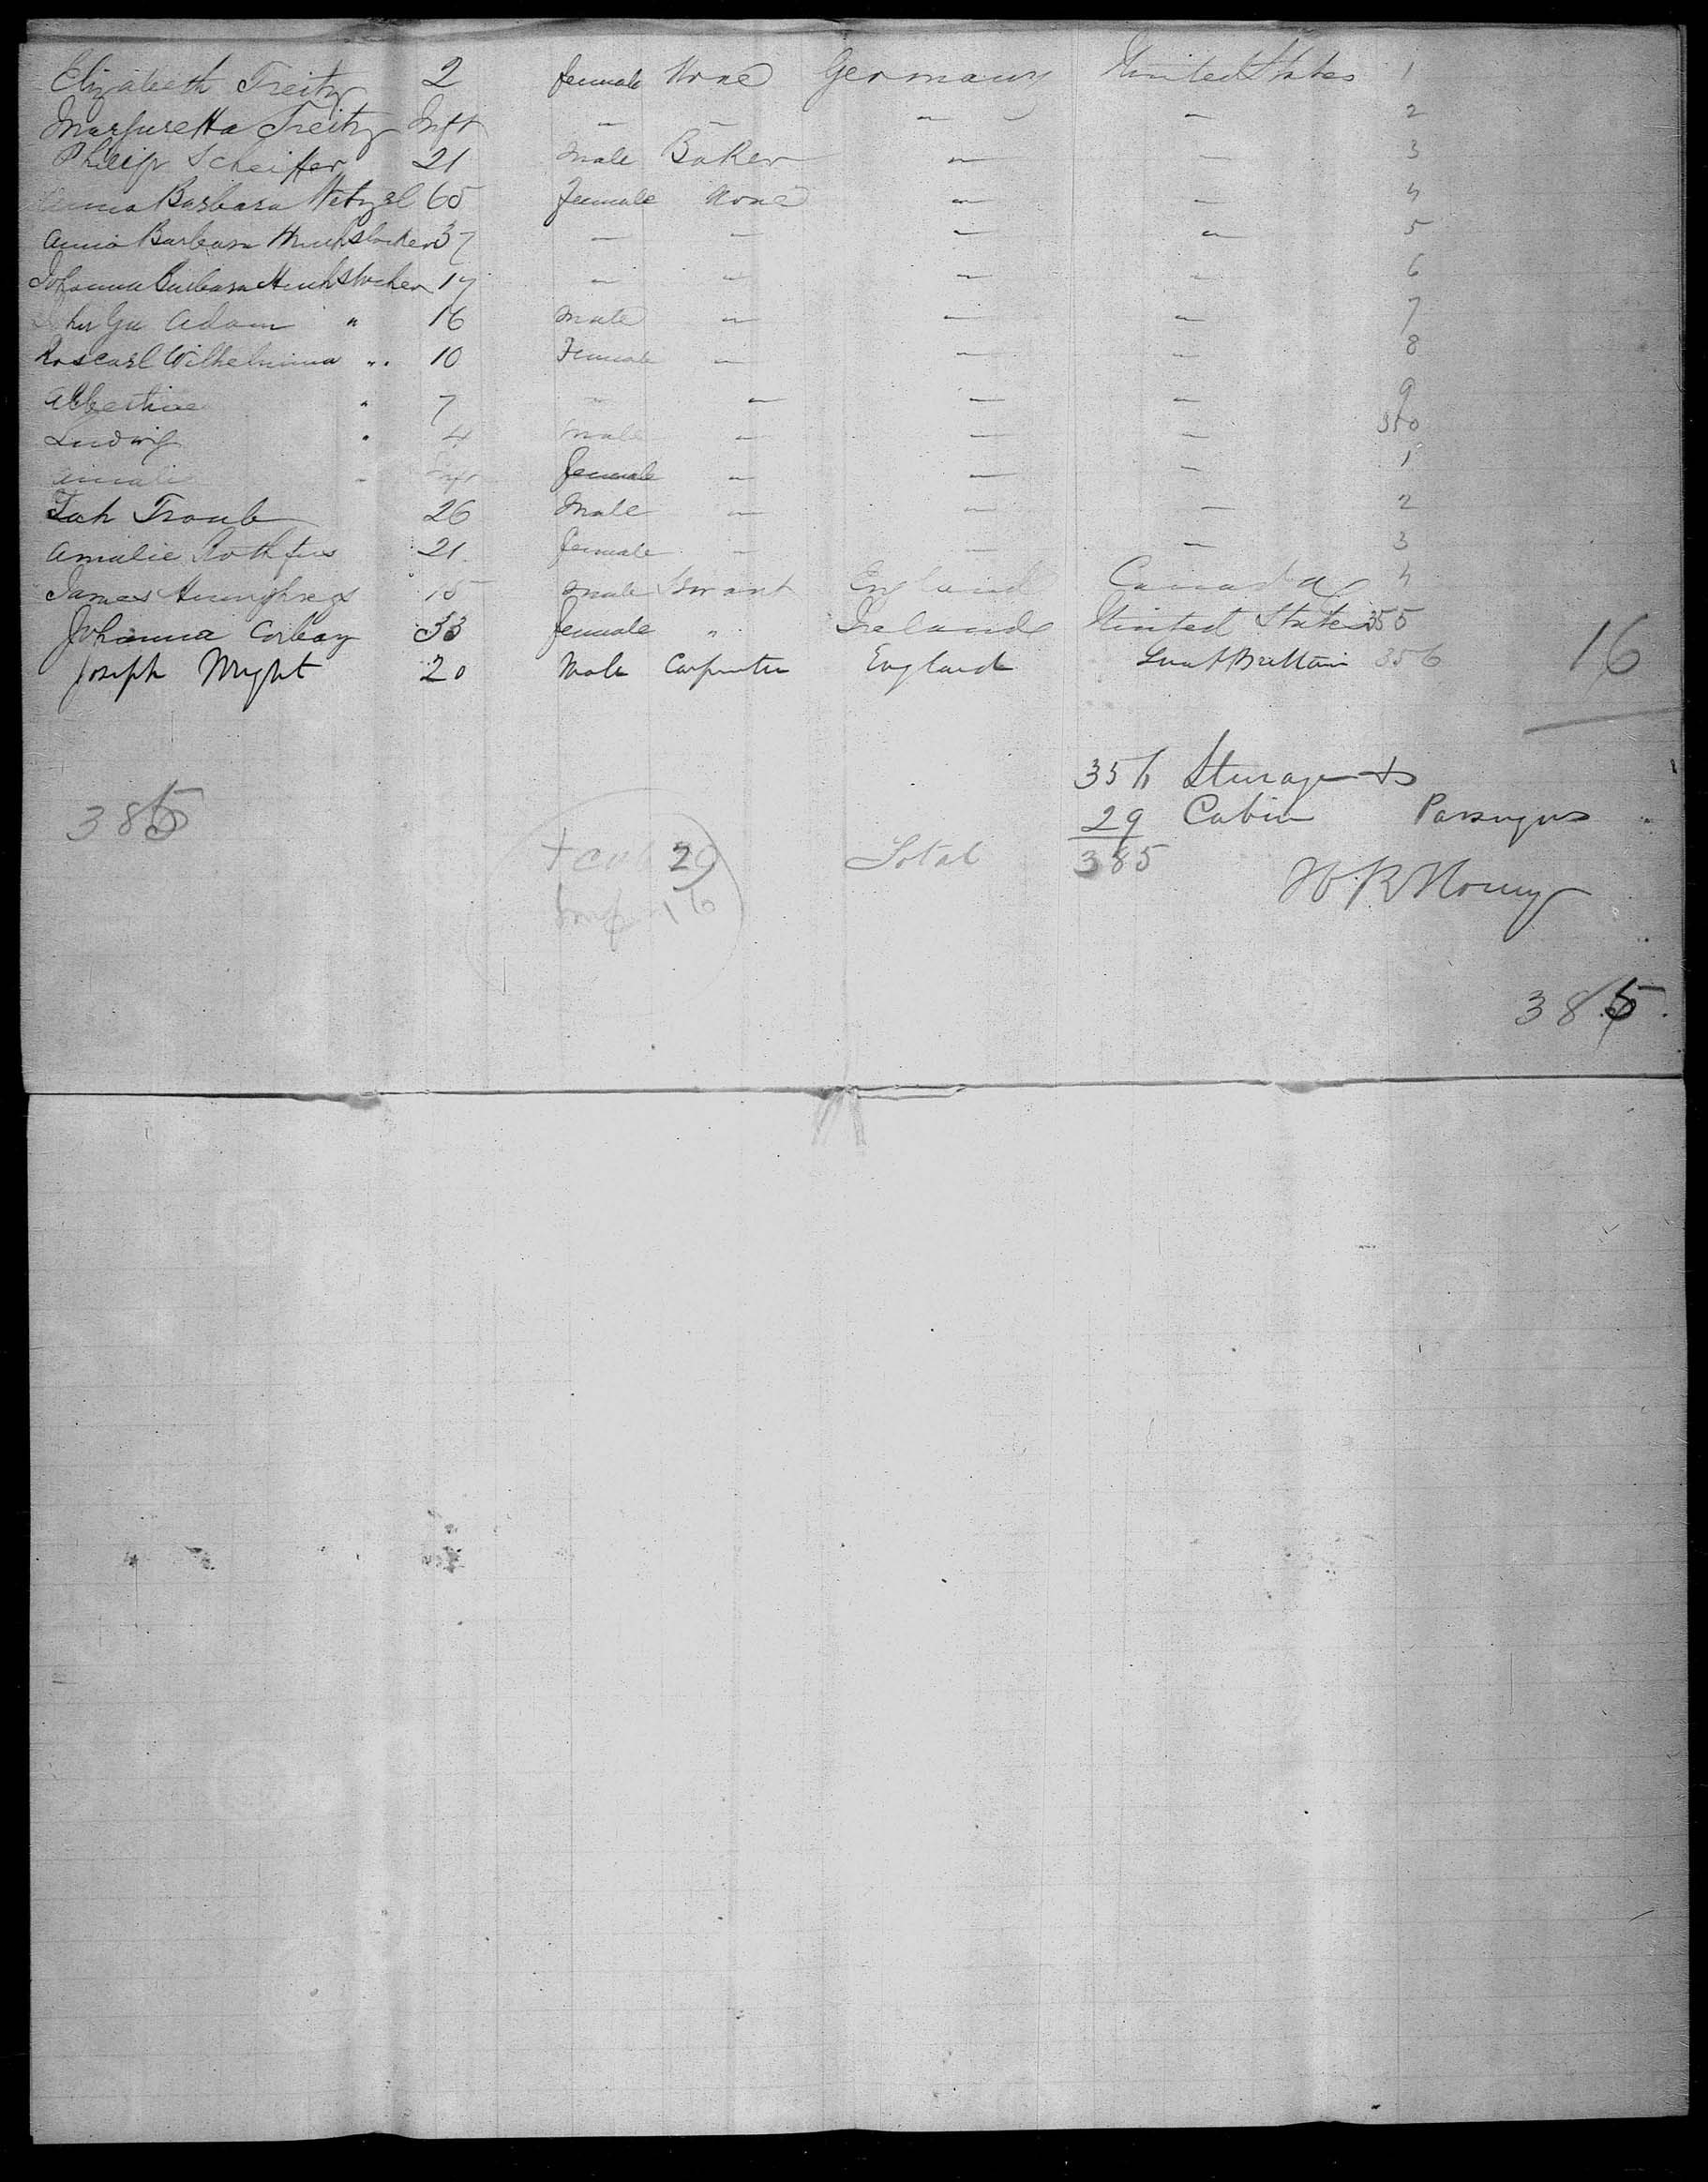 Elizabeth Treitz 2 female None Germany United States 1
Marguretta Treitz Inft — — — — 2
Philip Scheiffer 21 Male Baker — — 3
Anna Barbara Wetzel 60 Female None — — 4
Anna Barbara 37 — — — — 5
Johanna Barbara 17 — — — — 6
Adam " 16 Male — — — 7
Wilhelmina " 10 Female — — — 8
Albertine " 7 — — — — 9
Ludwig " 4 Male — — — 350
Amalie - Inft female — — — 1
Traub 26 Male — — — 2
Amalie Rothfus 21 female — — — 3
James Humphreys 15 male Servant England Canada 4
Johanna Corbay 33 female " Ireland United States 355
Joseph Wright 20 Male Carpenter England Great Brittain 356
16
356 Sturage
29 Cabin Passengers
Total 385
385
29
16
385